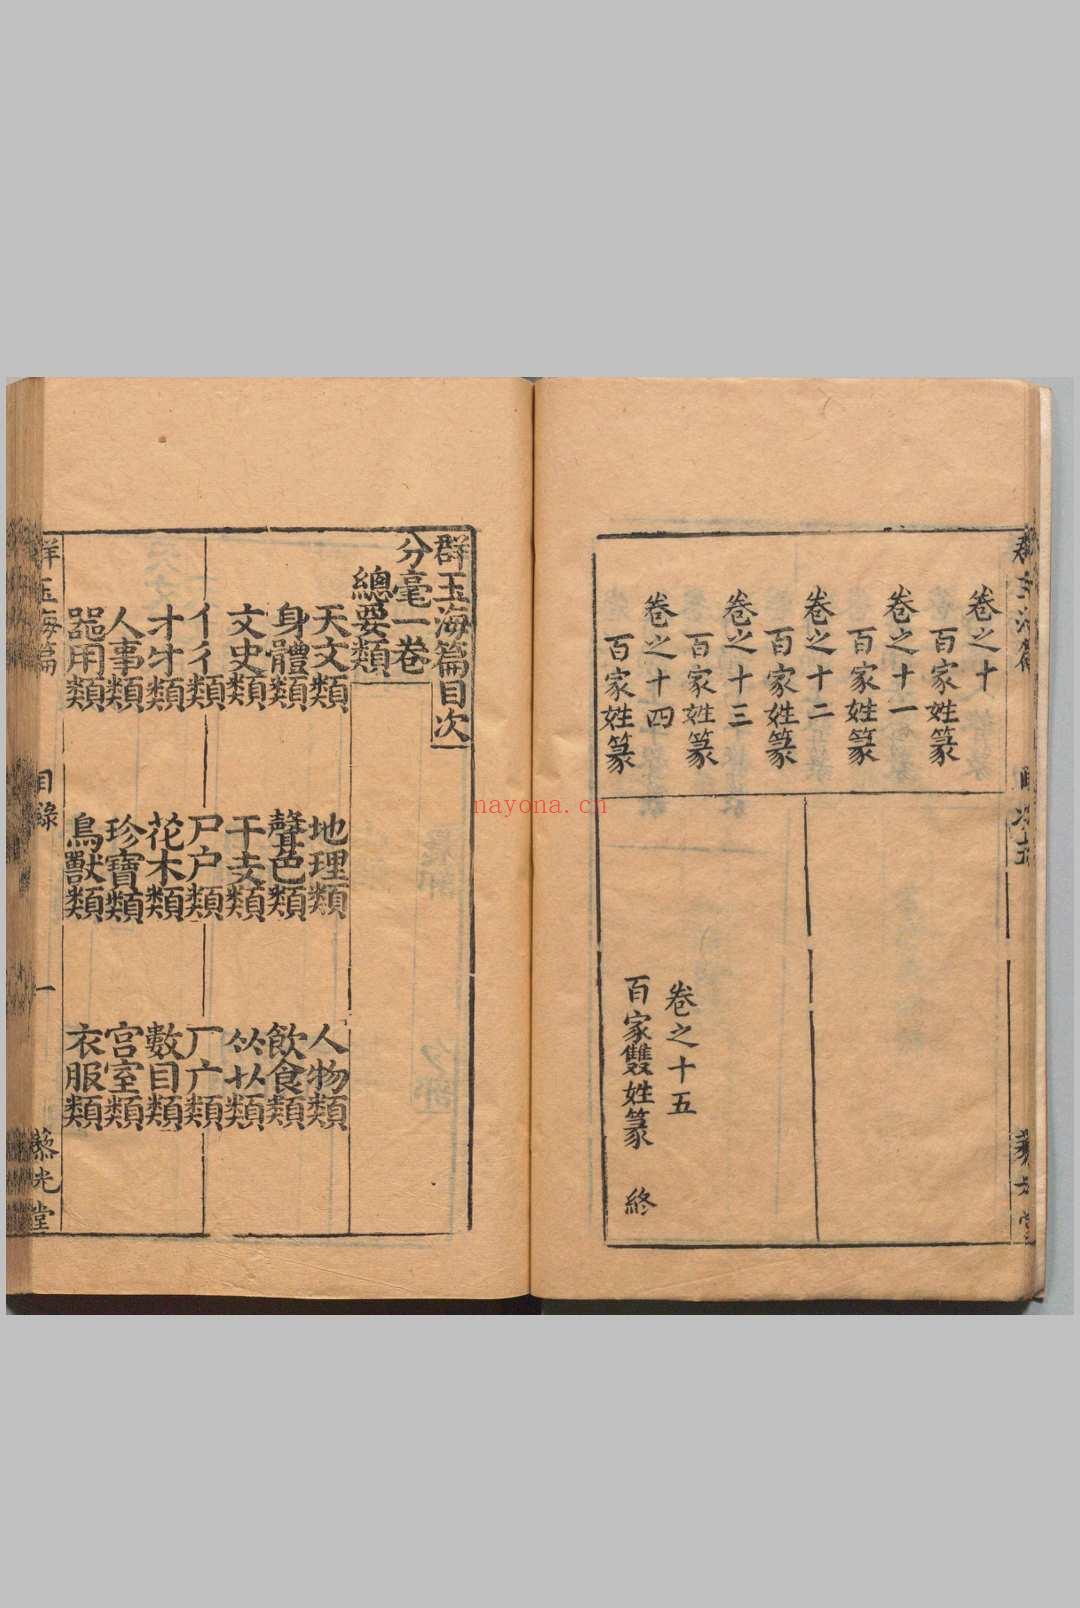 卷之十
百家姓篆
卷之十一
百家姓篆
卷之十二
百家姓篆
卷之十三
百家姓篆
卷之十四
百家姓篆
卷之十五
百家雙姓篆 終
群玉海篇目次
分毫一卷
總要類
天文類 地理類 人物類
身體類 聲色類 飲食類
文史類 干支類 𥫗艹類
亻彳類 尸户類 厂广類
才牛類 花木類 數目類
人事類 珍寶類 宫室類
器用類 鳥獸類 衣服類
群玉海篇 目錄 一
nayona.cn